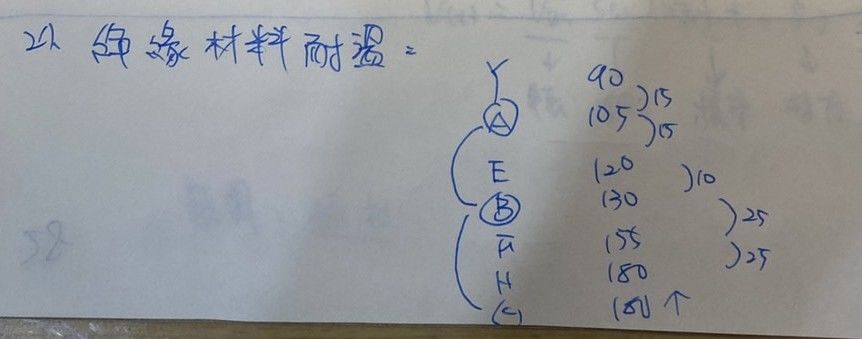 21. 絕緣材料耐溫:
Y 90
)15
A 105
)15
E 120
)10
B 130
)25
F 155
)25
H 180
C 180↑